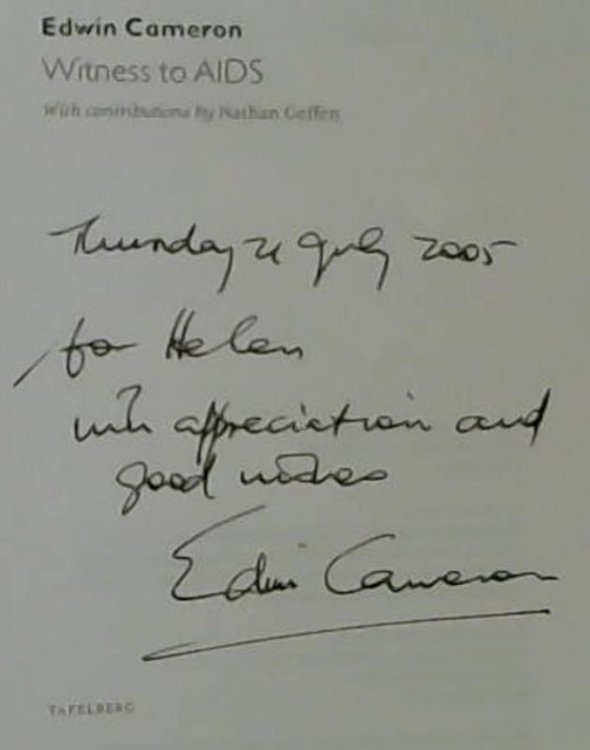 Edwin Cameron
Witness to AIDS
With contributions by Nathan Geffen
Thursday 21 July 2005
for Helen
with appreciation and
good wishes
Edwin Cameron
TAFELBERG